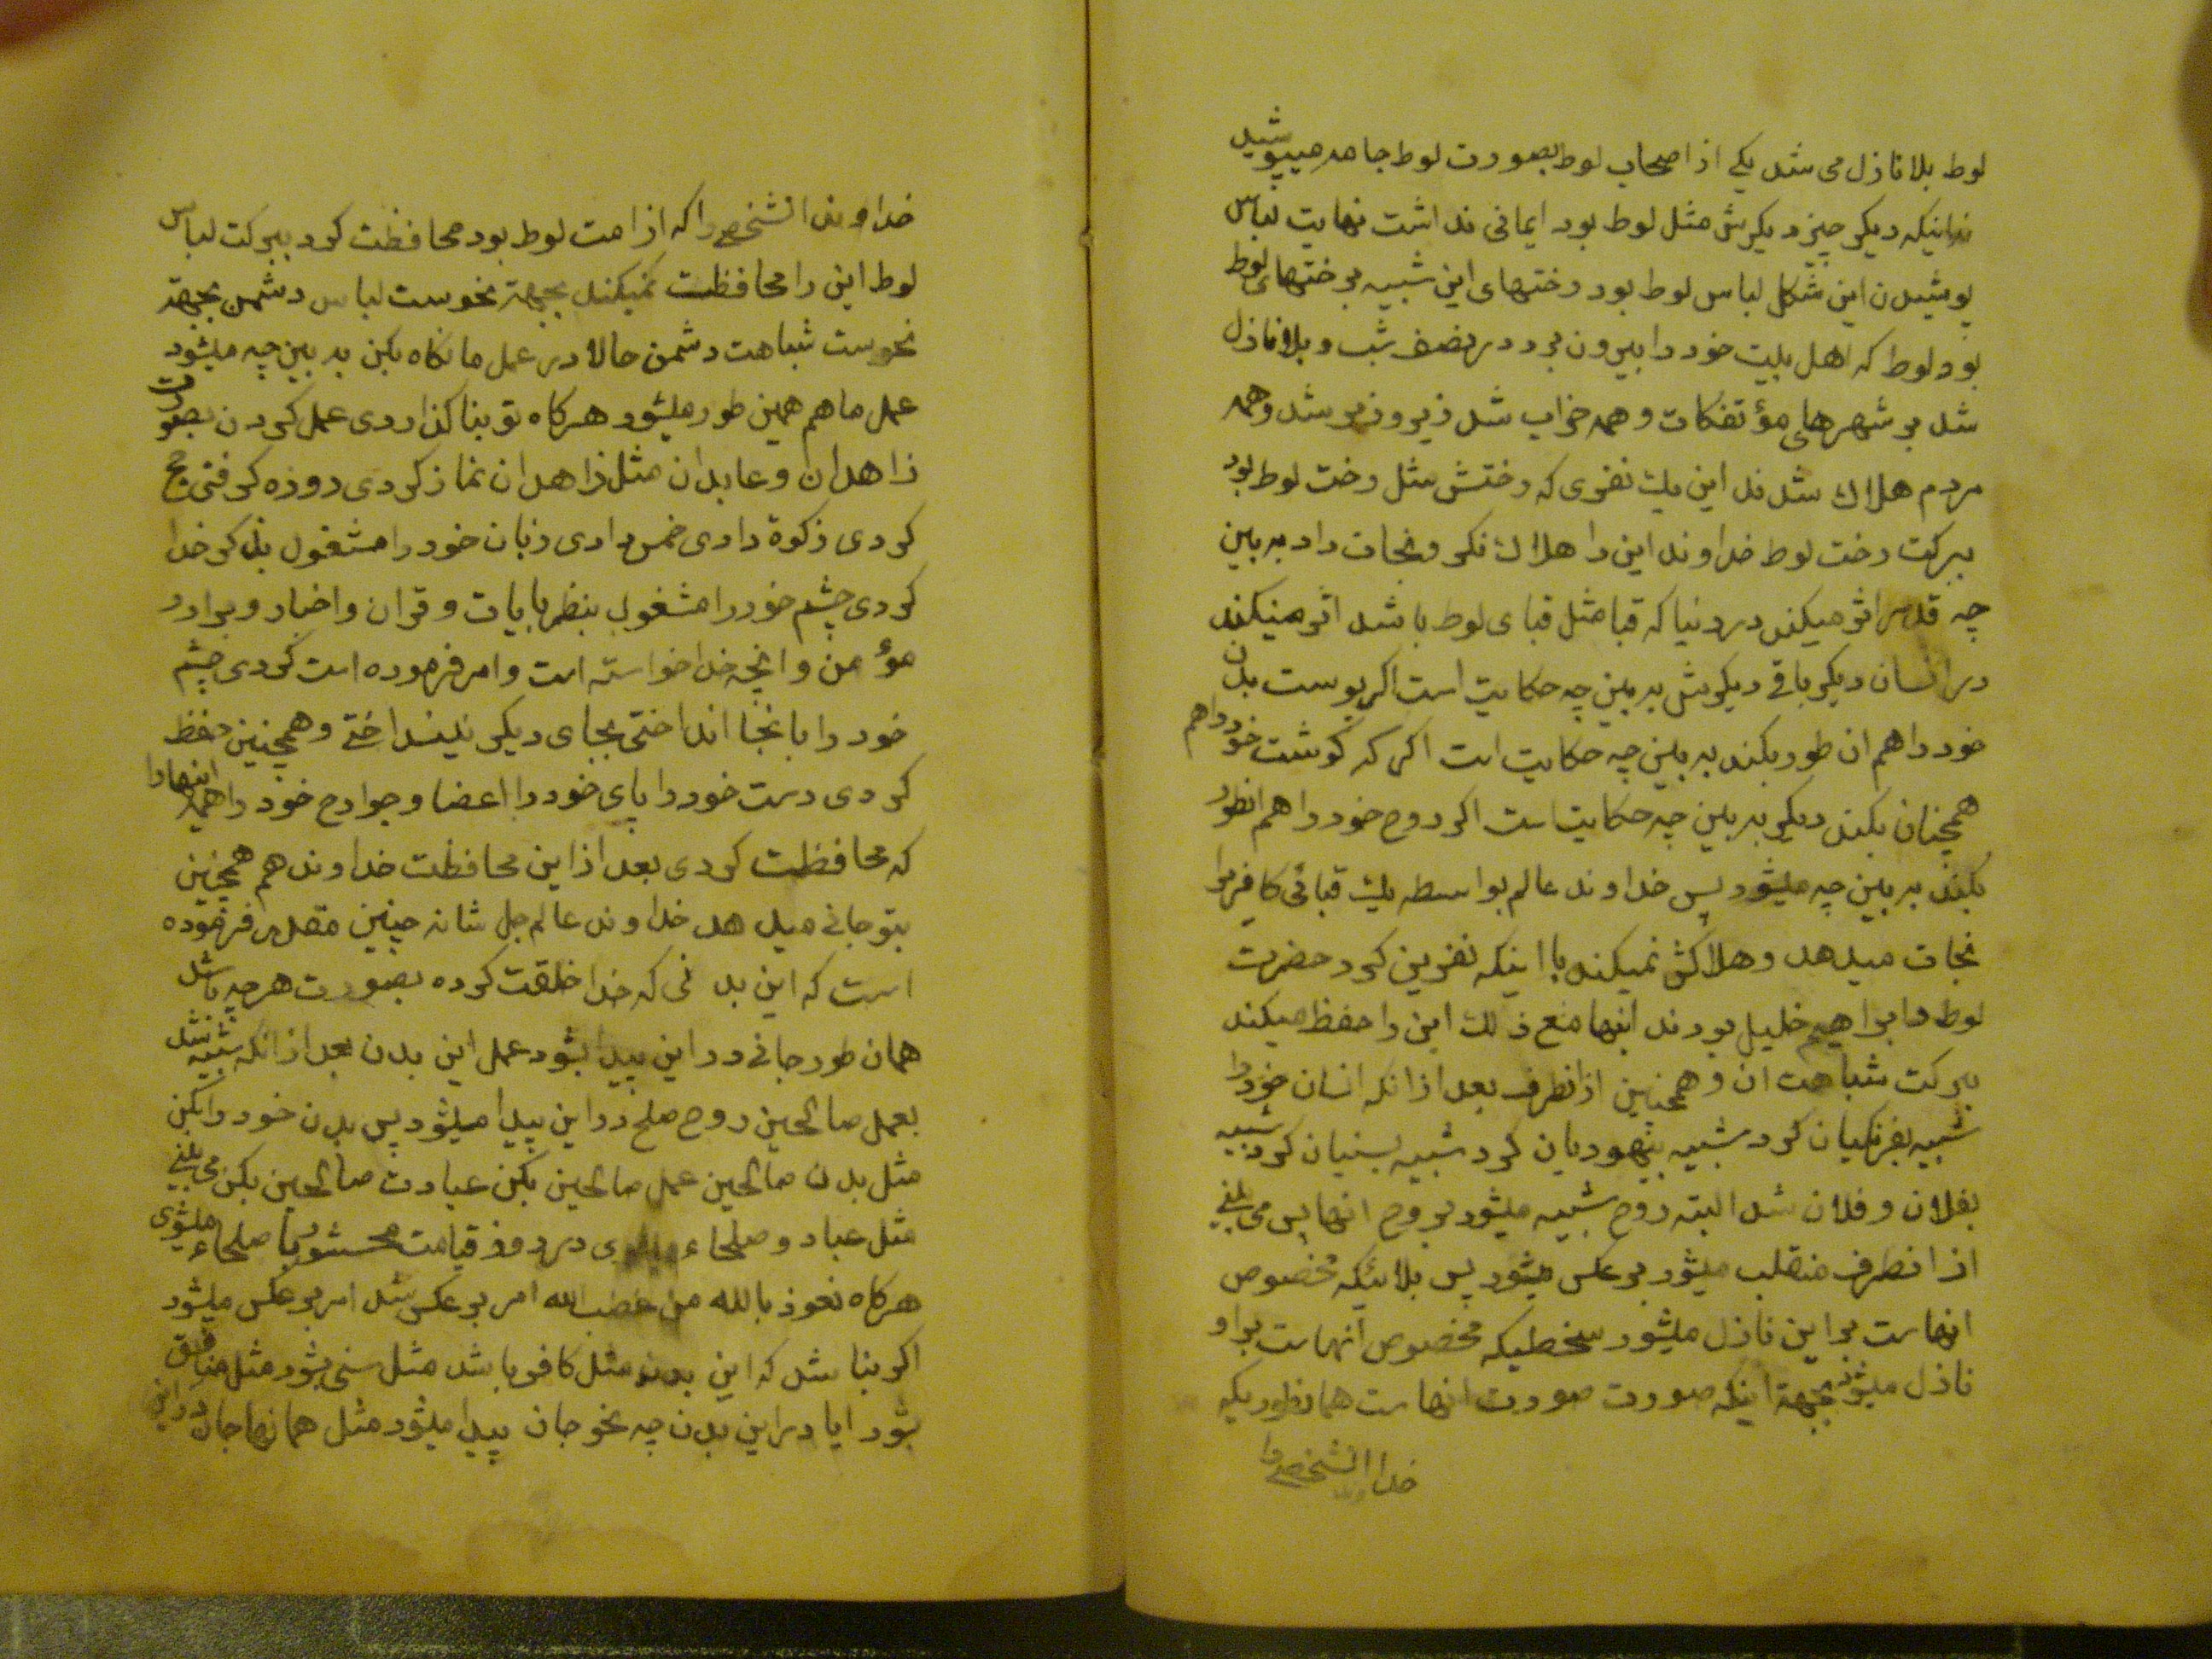 لوط بلا نازل می شد یکی از اصحاب لوط بصورت لوط جامه میپوشید
نه اینکه دیکر چیز دیکرش مثل لوط بود ایمانی نداشت نهایت لباس
پوشیدن این شکل لباس لوط بود رختهای این شبیه برختهای لوط
بود لوط که اهل بیت خود را بیرون برد در نصف شب و بلا نازل
شد بر شهرهای مؤتفکات و همه خراب شد زیر و زبر شد و همه
مردم هلاک شدند این یک نفری که رختش مثل رخت لوط بود
ببرکت رخت لوط خداوند این را هلاک نکرد و نجات داد به بین
چه قدر اثر میکند در دنیا که قبا مثل قبای لوط باشد اثر میکند
در انسان دیکر باقی دیکرش به بین چه حکایت است اکر پوست بدن
خود را هم ان طور بکند به بین چه حکایت است اکر که کوشت خود را هم
همچنان بکند دیکر به بین چه حکایت است اکر روح خود را هم انطور
بکند به بین چه میشود پس خداوند عالم بواسطه یک قبائی کافر را
نجات میدهد و هلاکش نمیکند با اینکه نفرین کرد حضرت
لوط و ابراهیم خلیل بودند اینها مع ذلک این را حفظ میکند
ببرکت شباهت ان و همچنین ازانطرف بعد ازانکه انسان خود را
شبیه بفرنکیان کرد شبیه بیهودیان کرد شبیه بسنیان کرد شبیه
بفلان و فلان شد البته روح شبیه میشود بروح انها پس می بینی
از انطرف منقلب میشود برعکس میشود پس بلائیکه مخصوص
انهاست براین نازل میشود سخطیکه مخصوص انهاست براو
نازل میشود بجهة اینکه صورت صورت انهاست همانطوریکه
خدا الشخص را
خداوند الشخص را که از امت لوط بود محافظت کرد ببرکت لباس
لوط این را محافظت نمیکند بجهة نحوست لباس دشمن بجهة
نحوست شباهت دشمن حالا در عمل ما نکاه بکن به بین چه میشود
عمل ما هم همین طور میشود هرکاه تو بنا کذاردی عمل کردن بصورت
زاهدان و عابدان مثل زاهدان نماز کردی روزه کرفتی حج
کردی زکوة دادی خمس دادی زبان خود را مشغول بذکر خدا
کردی چشم خود را مشغول بنظر بایات و قران و اخبار و برادر
مؤمن و انچه خدا خواسته است و امر فرموده است کردی چشم
خود را بانجا انداختی بجای دیکر نینداختی و همچنین حفظ
کردی دست خود را پای خود را اعضا و جوارح خود را همه اینها را
که محافظت کردی بعد از این محافظت خداوند هم همچنین
بتو جانی میدهد خداوند عالم جل شانه چنین مقدر فرموده
است که این بدنی که خدا خلقت کرده بصورت هرچه باشد
همان طور جانی در این پیدا بشود عمل این بدن بعد ازانکه شبیه شد
بعمل صالحین روح صلح در این پیدا میشود پس بدن خود را بکن
مثل بدن صالحین عمل صالحین بکن عبادت صالحین بکن می بینی
مثل عباد و صلحاء میشوی در روز قیامت محشور با صلحاء میشوی
هرکاه نعوذ بالله من غضب الله امر برعکس شد امر برعکس میشود
اکر بنا شد که این بدن مثل کافر باشد مثل سنی بشود مثل منافق
بشود ایا در این بدن چه نحو جان پیدا میشود مثل همانها جان در این